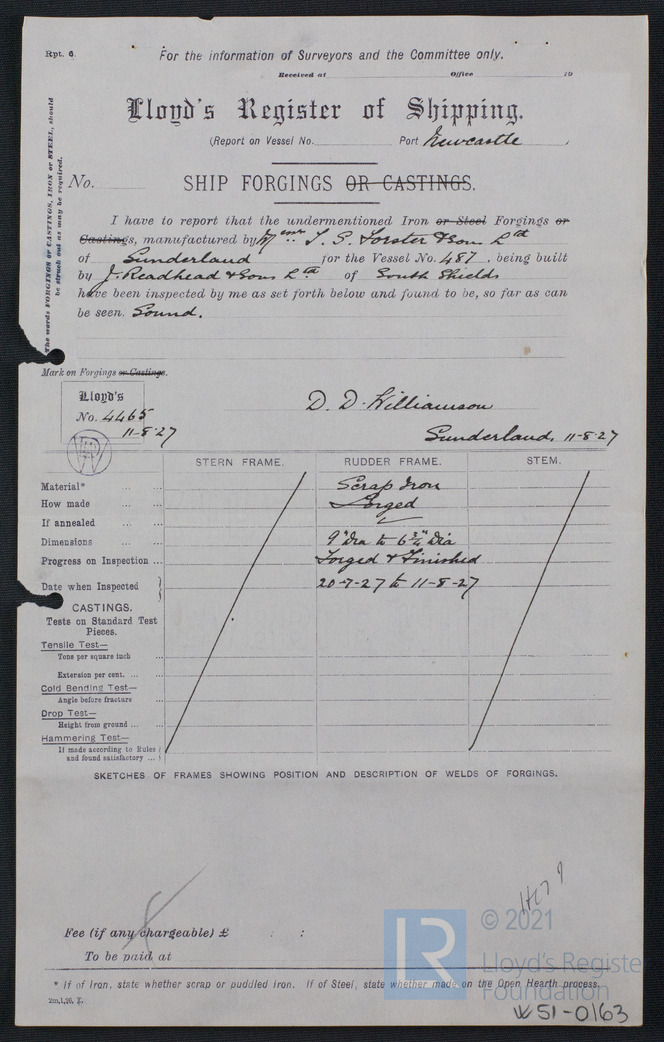 Rpt. 6.
For the information of Surveyors and the Committee only.
Received at Office 19
Lloyd's Register of Shipping.
(Report on Vessel No. Port Newcastle
The words FORGINGS or CASTINGS, IRON or STEEL, should
be struck out as may be required.
No. SHIP FORGINGS OR CASTINGS.
I have to report that the undermentioned Iron or Steel Forgings or
Castings, manufactured by Messrs T. S. Forster & Sons Ltd
of Sunderland for the Vessel No. 487, being built
by J. Readhead & Sons Ltd of South Shields
have been inspected by me as set forth below and found to be, so far as can
be seen. Sound.
Mark on Forgings or Castings.
Lloyd's
No. 4465
11-8-27
D. D. Williamson
Sunderland, 11-8-27
STERN FRAME. RUDDER FRAME. STEM.
Material* Scrap Iron
How made Forged
If annealed
Dimensions 9" Dia to 6¾" Dia
Progress on Inspection Forged & Finished
Date when Inspected 20-7-27 to 11-8-27
CASTINGS.
Tests on Standard Test
Pieces.
Tensile Test—
Tons per square inch
Extension per cent.
Cold Bending Test—
Angle before fracture
Drop Test—
Height from ground
Hammering Test—
If made according to Rules
and found satisfactory
SKETCHES OF FRAMES SHOWING POSITION AND DESCRIPTION OF WELDS OF FORGINGS.
Fee (if any chargeable) £ : :
To be paid at
LR © 2021
Lloyd's Register
Foundation
* If of Iron, state whether scrap or puddled Iron. If of Steel, state whether made on the Open Hearth process.
2m,1,26. T.
W51-0163